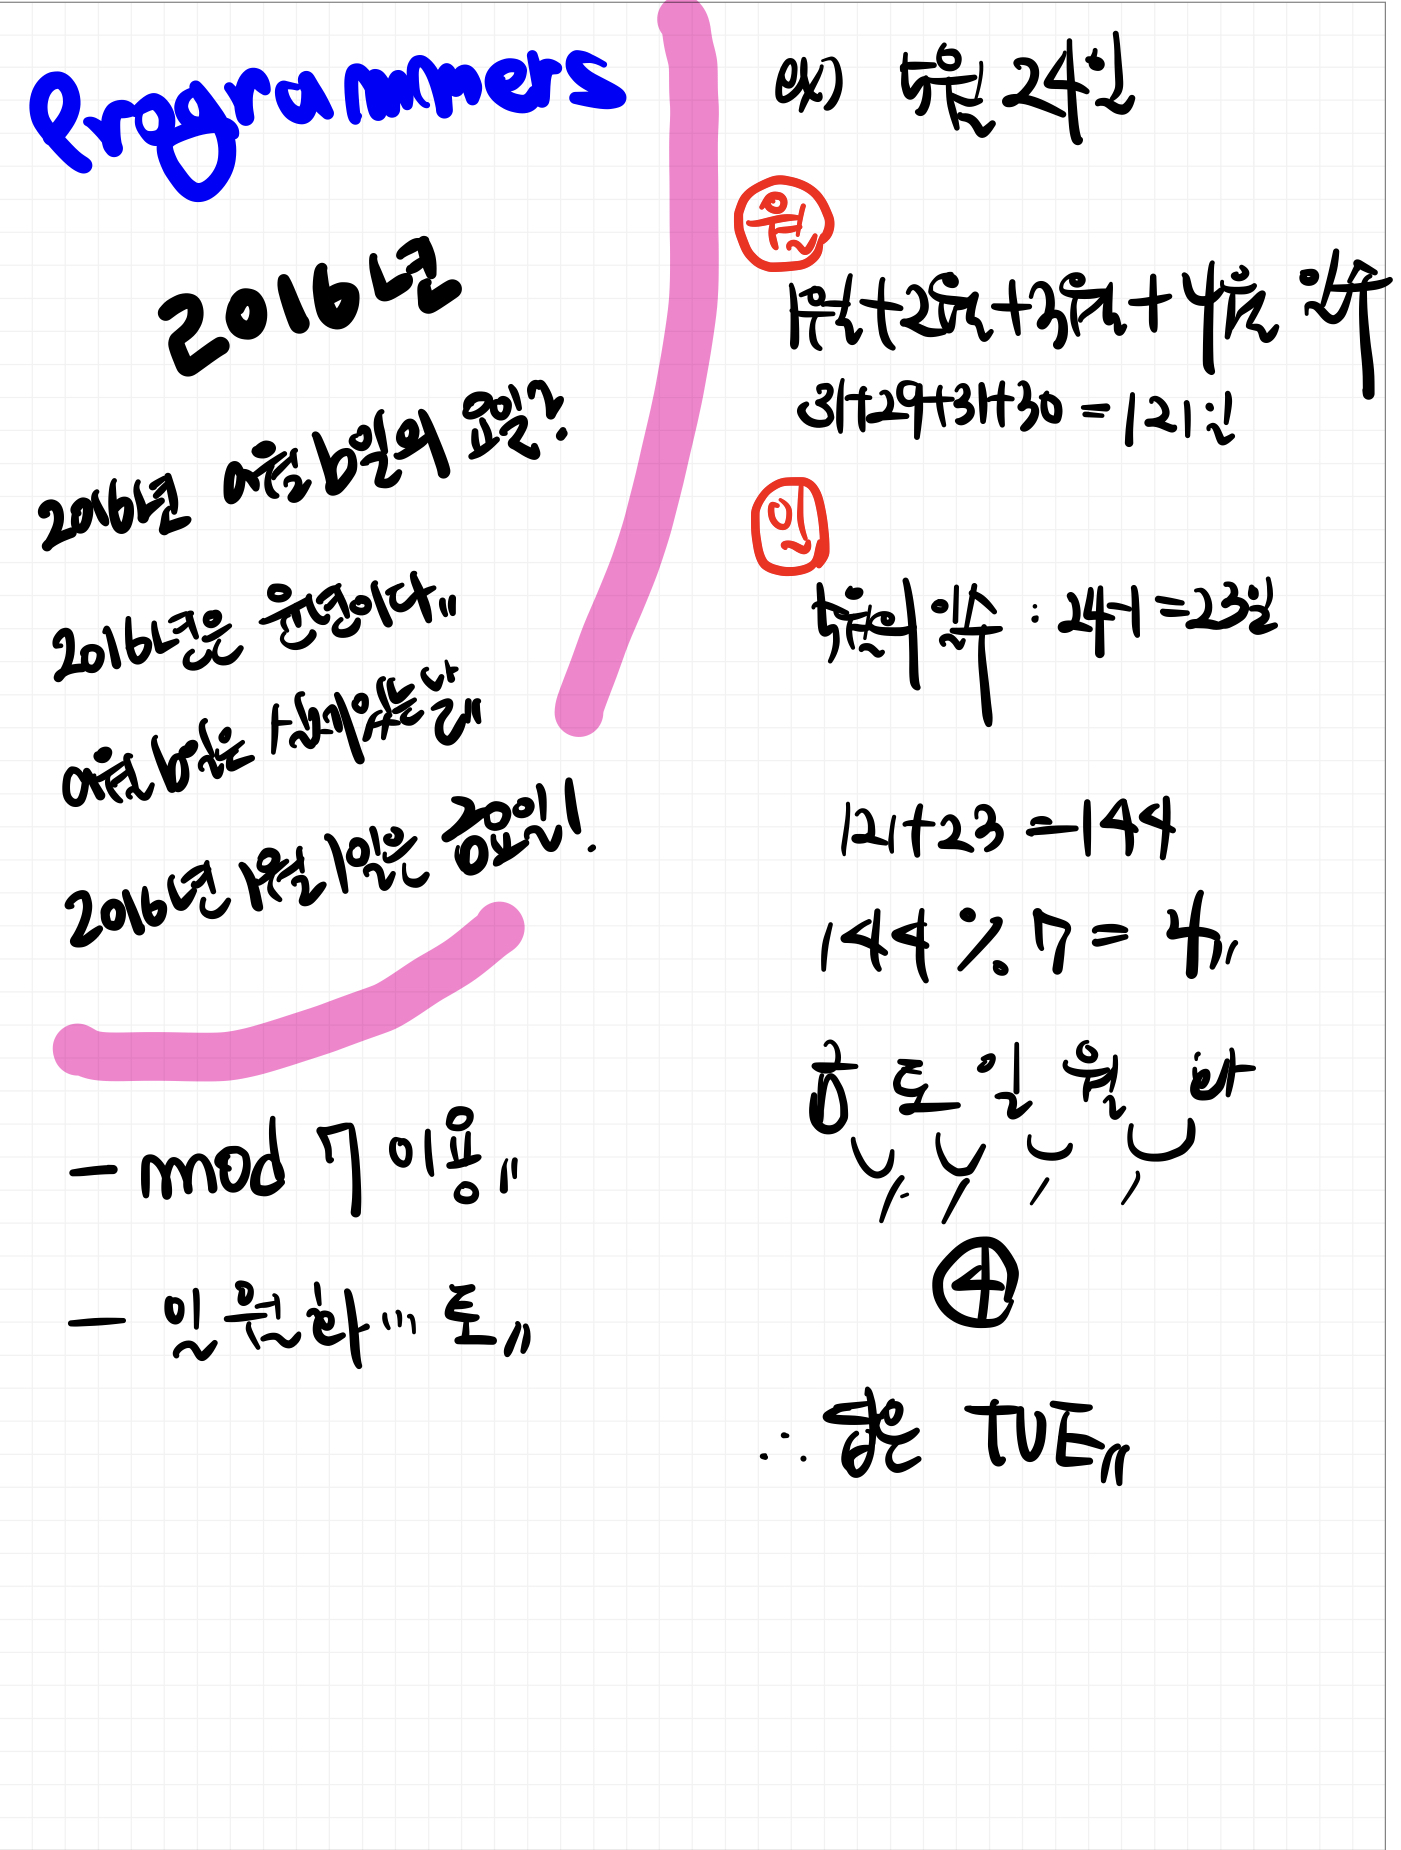 Programmers
2016년
2016년 a월 b일의 요일?
2016년은 윤년이다.,,
a월 b일은 실제 있는 날,,
2016년 1월 1일은 금요일!
- mod 7 이용,,
- 일 월 화 ... 토,,
ex) 5월 24일
월
1월+2월+3월+4월 일수
31+29+31+30 = 121일
일
5월의 일수 : 24-1=23일
121+23 = 144
144 % 7 = 4,,
금 토 일 월 화
4
∴ 답은 TUE,,